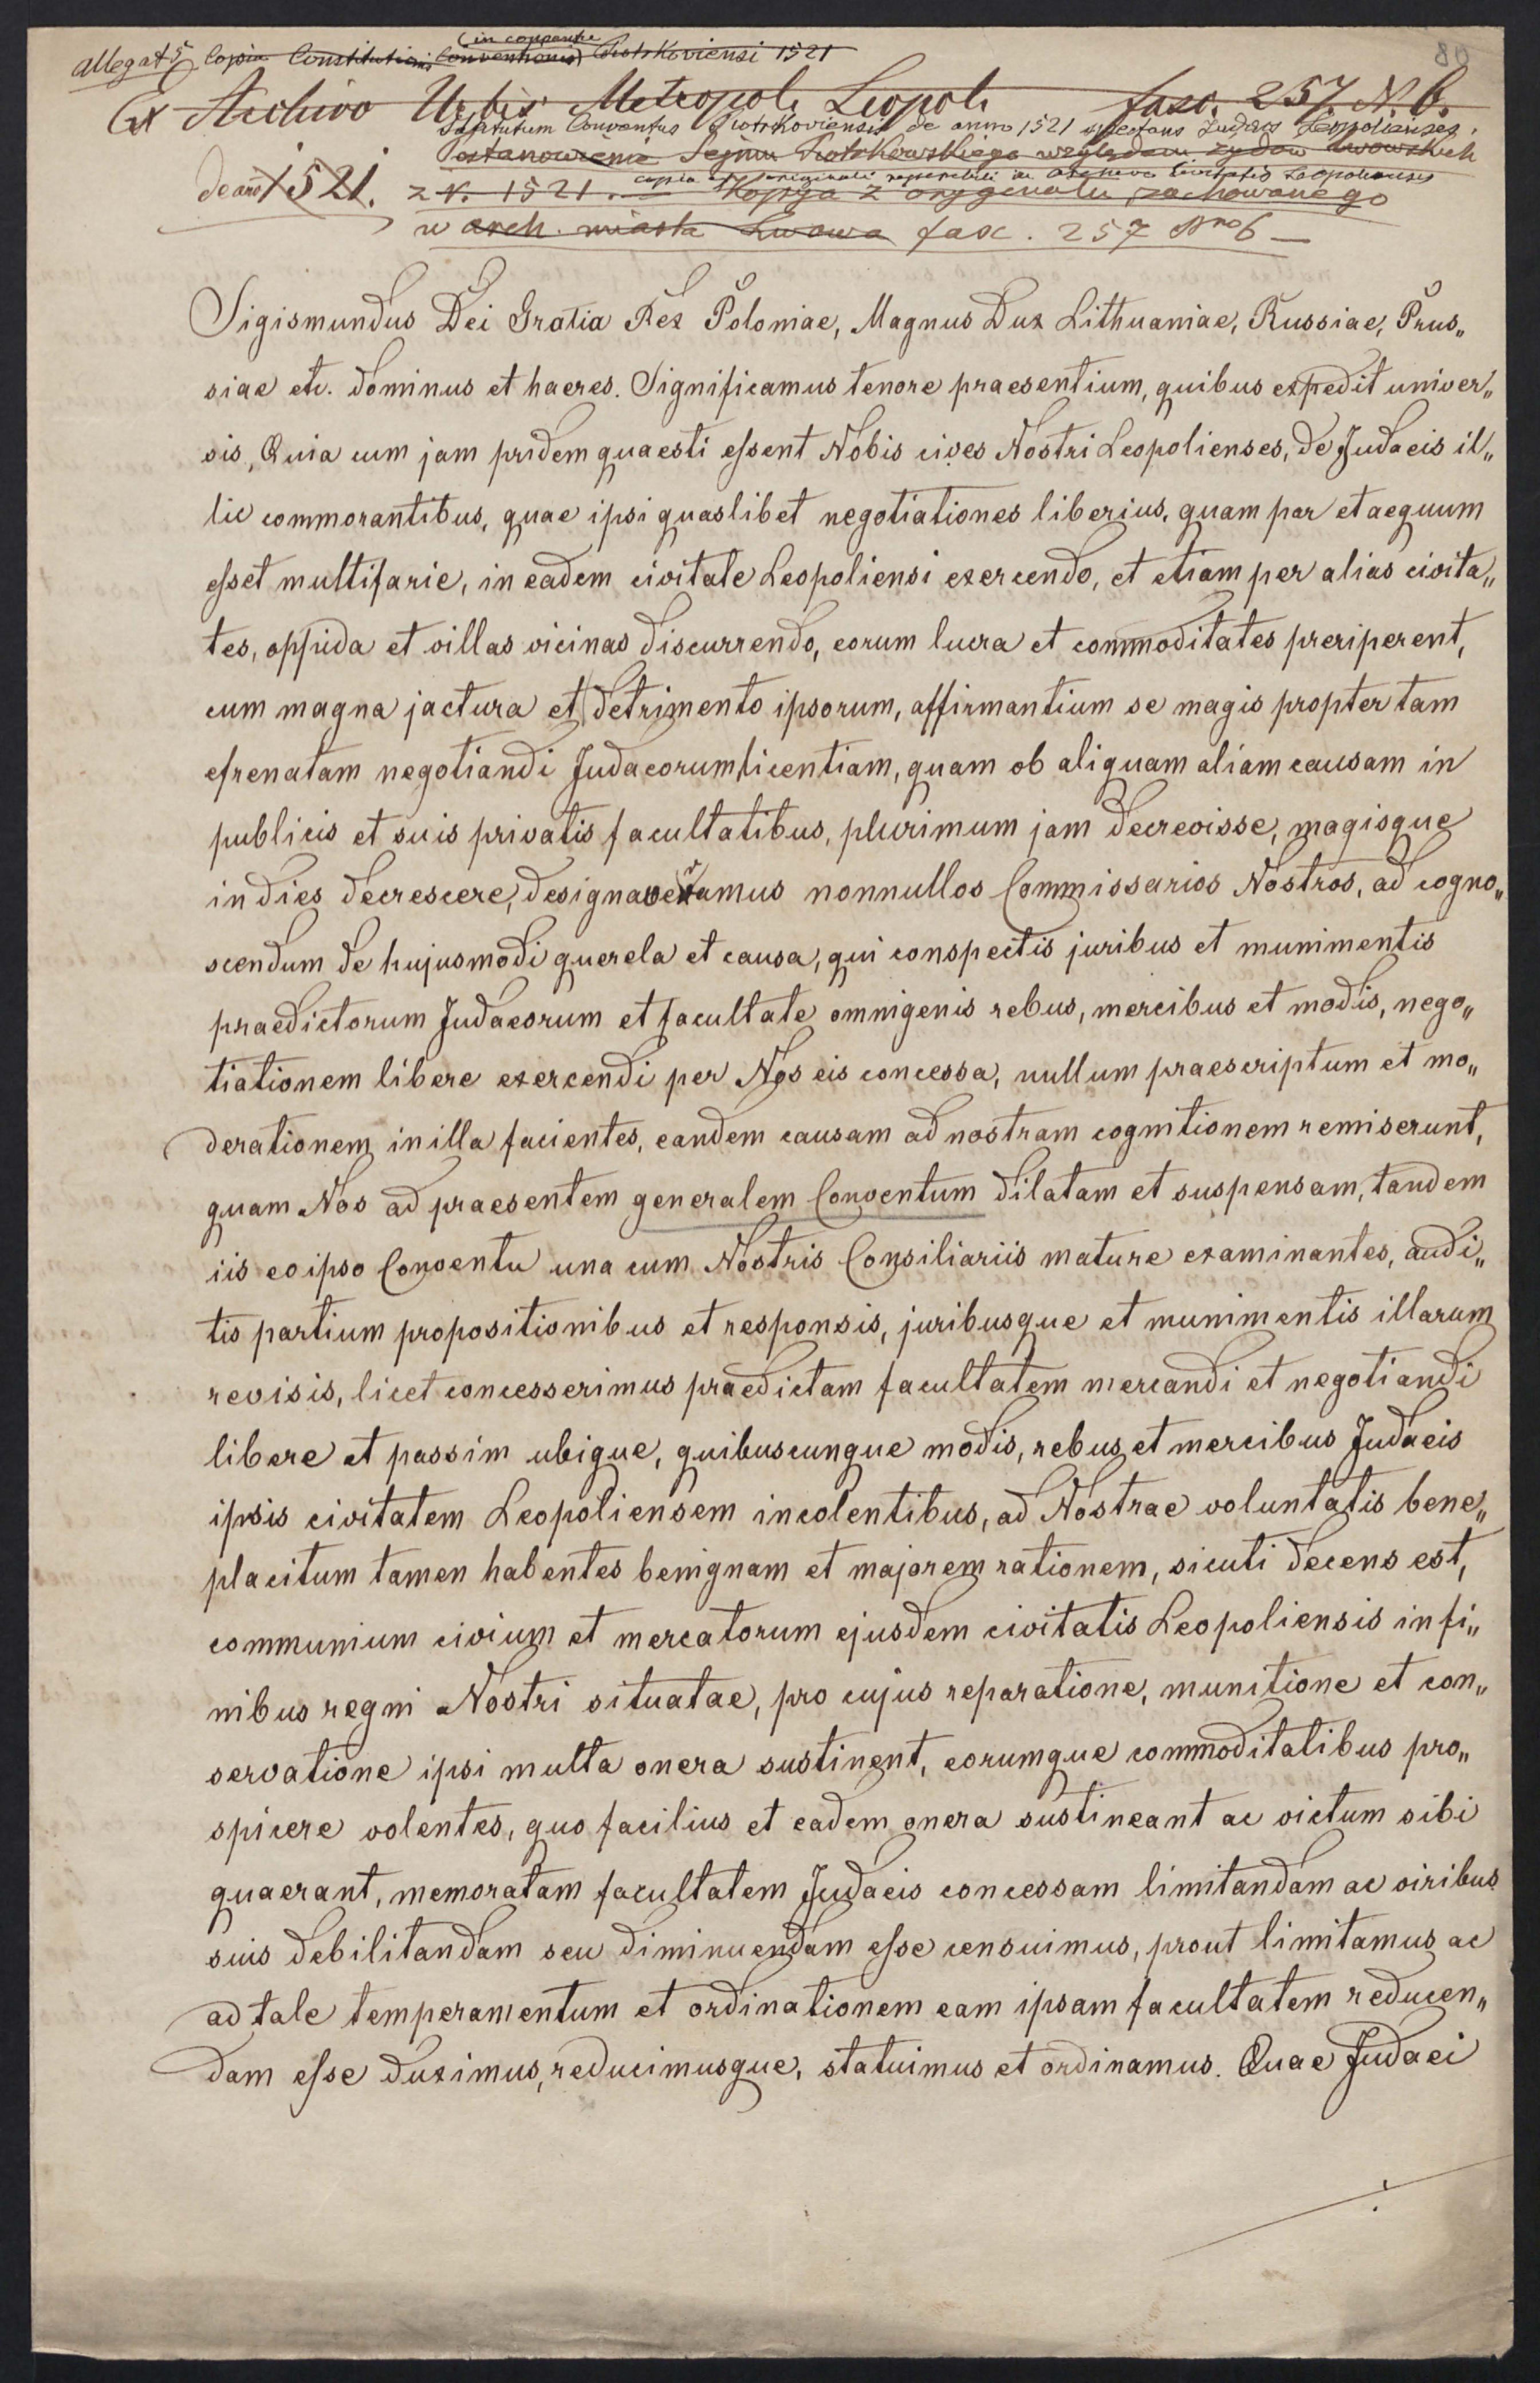 80
allegat 5 Copia Constitutionis (in conventu
Conventionis) Piotrkoviensi 1521
Ex Archivo Urbis Metropoli Leopoli fasc. 257. N. 6.
Statutum Conventus Piotrkoviensis de anno 1521 Judaeos Leopolienses.
Postanowienie Sejmu Piotrkowskiego względem żydów lwowskich
de anno 1521. z r. 1521. — Kopija z orygenalu zachowanego
copia ex originali reperibili in Archivo Civitatis Leopoliensis
w arch. miasta Lwowa fasc. 257 Nro 6 —
Sigismundus Dei Gratia Rex Poloniae, Magnus Dux Lithuaniae, Russiae, Prus„
siae etc. dominus et haeres. Significamus tenore praesentium, quibus expedit univer„
sis, Quia cum jam pridem quaesti essent Nobis cives Nostri Leopolienses, de Judaeis il„
lic commorantibus, quae ipsi quaslibet negotiationes liberius, quam par et aequum
esset multifarie, in eadem civitate Leopoliensi exercendo, et etiam per alias civita„
tes, oppida et villas vicinas discurrendo, eorum lucra et commoditates preriperent,
cum magna jactura et detrimento ipsorum, affirmantium se magis propter tam
efrenatam negotiandi Judaeorum licentiam, quam ob aliquam aliam causam in
publicis et suis privatis facultatibus, plurimum jam decrevisse, magisque
in dies decrescere, designaveramus nonnullos Commissarios Nostros, ad cogno„
scendum de hujusmodi querela et causa, qui conspectis juribus et munimentis
praedictorum Judaeorum et facultate omnigenis rebus, mercibus et modis, nego„
tiationem libere exercendi per Nos eis concessa, nullum praescriptum et mo„
derationem in illa facientes, eandem causam ad nostram cognitionem remiserunt,
quam Nos ad praesentem generalem Conventum dilatam et suspensam, tandem
iis eo ipso Conventu una cum Nostris Consiliariis mature examinantes, audi„
tis partium propositionibus et responsis, juribusque et munimentis illarum
revisis, licet concesserimus praedictam facultatem mercandi et negotiandi
libere et passim ubique, quibuscunque modis, rebus et mercibus Judaeis
ipsis civitatem Leopoliensem incolentibus, ad Nostrae voluntatis bene„
placitum tamen habentes benignam et majorem rationem, sicuti decens est,
communium civium et mercatorum ejusdem civitatis Leopoliensis in fi„
nibus regni Nostri situatae, pro cujus reparatione, munitione et con„
servatione ipsi multa onera sustinent, eorumque commoditatibus pro„
spicere volentes, quo facilius et eadem onera sustineant ac victum sibi
quaerant, memoratam facultatem Judaeis concessam limitandam ac viribus
suis debilitandam seu diminuendam esse censuimus, prout limitamus ac
ad tale temperamentum et ordinationem eam ipsam facultatem reducen„
dam esse duximus, reducimusque, statuimus et ordinamus. Quae Judaei